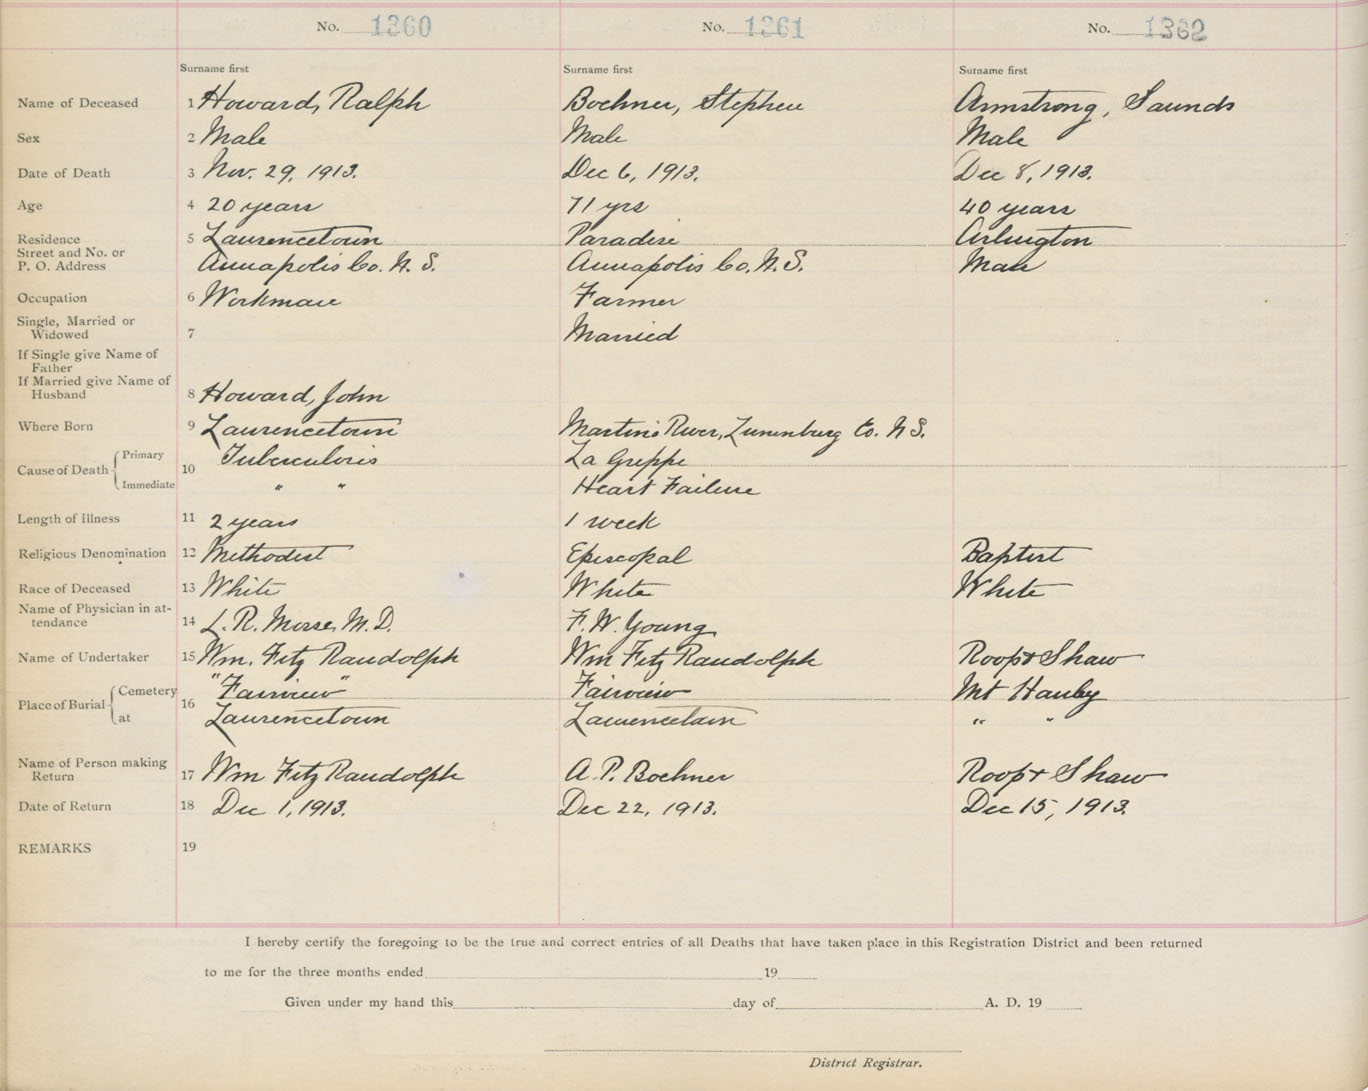 No. 1360 No. 1361 No. 1362
Surname first Surname first Surname first
Name of Deceased 1 Howard, Ralph Boehner, Stephen Armstrong, Saunds
Sex 2 Male Male Male
Date of Death 3 Nov. 29, 1913. Dec 6, 1913. Dec 8, 1913.
Age 4 20 years 71 yrs 40 years
Residence 5 Laurencetown Paradise Arlington
Street and No. or
P. O. Address Annapolis Co. N. S. Annapolis Co. N. S. Man
Occupation 6 Workman Farmer
Single, Married or
Widowed 7 Married
If Single give Name of
Father
If Married give Name of
Husband 8 Howard, John
Where Born 9 Laurencetown Martins River, Lunenburg Co. N S.
Cause of Death Primary 10 Tuberculosis La Grippe
Immediate " " Heart Failure
Length of Illness 11 2 years 1 week
Religious Denomination 12 Methodist Episcopal Baptist
Race of Deceased 13 White White White
Name of Physician in at-
tendance 14 L. R. Morse, M. D. F. W. Young
Name of Undertaker 15 Wm. Fitz Randolph Wm Fitz Randolph Roop & Shaw
Place of Burial Cemetery 16 "Fairview" Fairview Mt Hanley
at Laurencetown Laurencetown " "
Name of Person making
Return 17 Wm Fitz Randolph A. P. Boehner Roop & Shaw
Date of Return 18 Dec 1, 1913. Dec 22, 1913. Dec 15, 1913
REMARKS 19
I hereby certify the foregoing to be the true and correct entries of all Deaths that have taken place in this Registration District and been returned
to me for the three months ended 19
Given under my hand this day of A. D. 19
District Registrar.